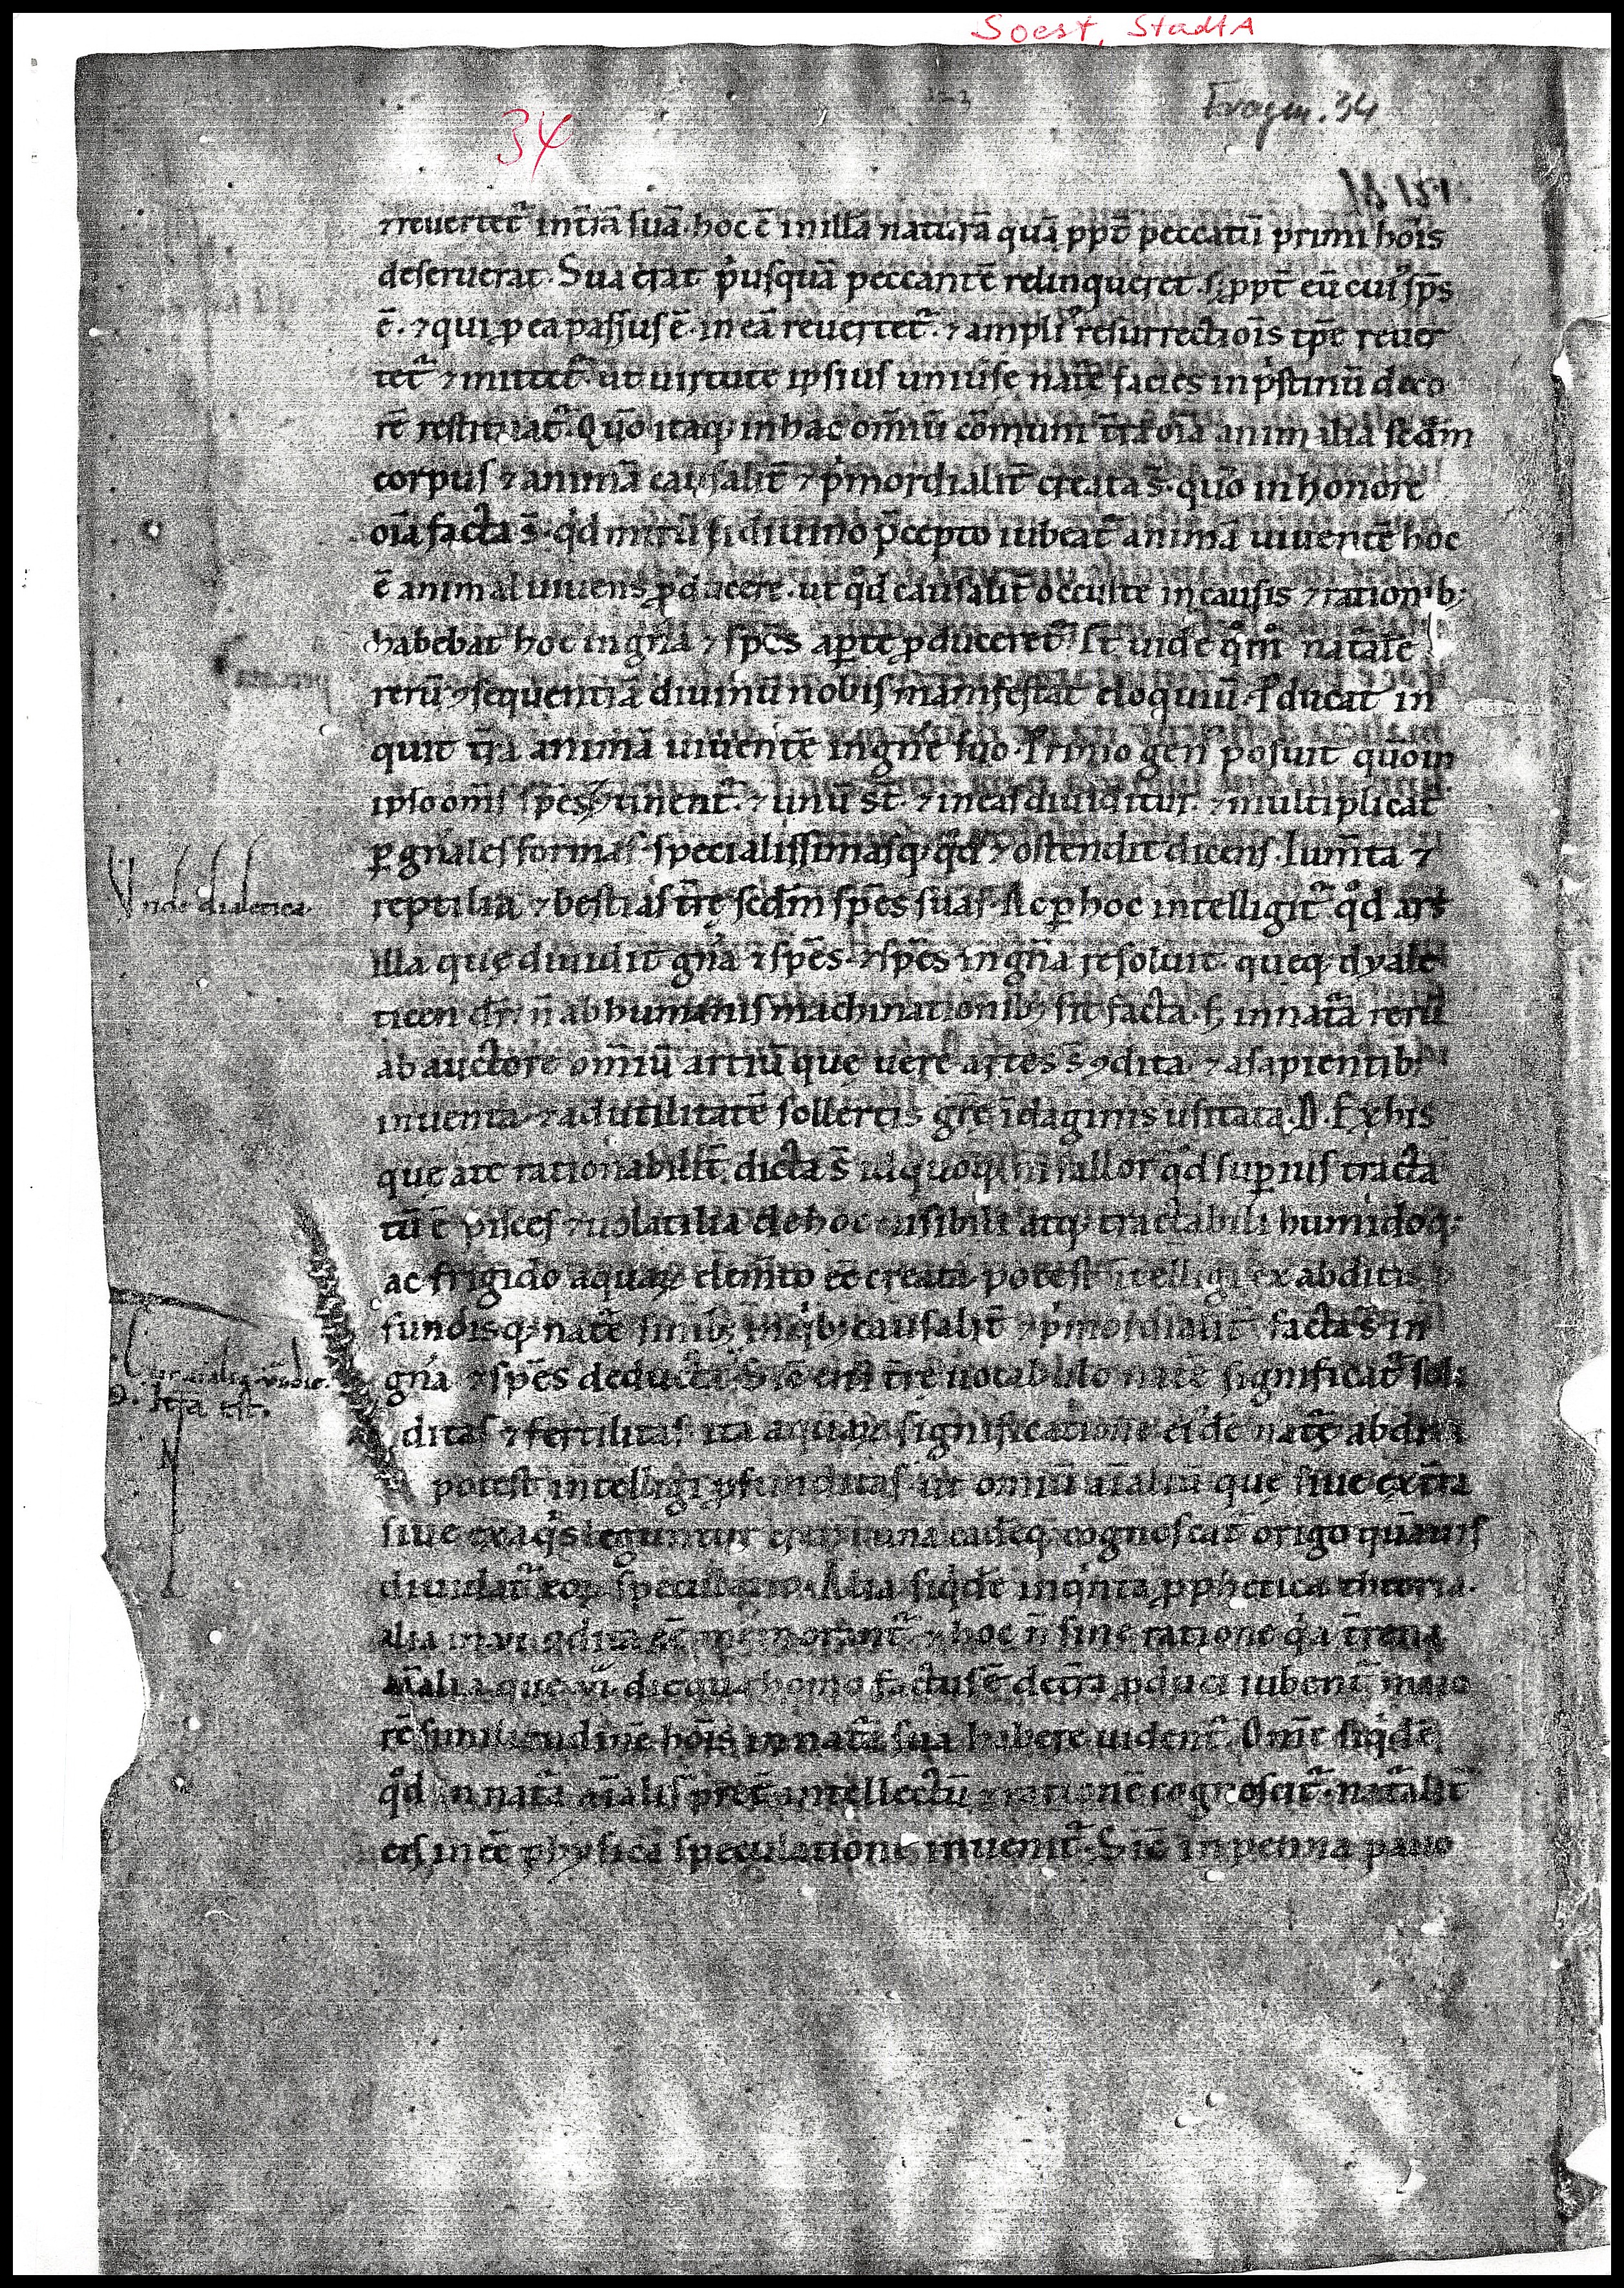 Soest, StadtA
34
Fragm. 34
⁊ reuertet᷑ in t̄rā suā · hoc ē in illā naturā quā ꝓpt̄ peccatū primi hōis
deseruerat · Sua erat p'usquā peccantē relinqueret · sꝫ ꝓpt̄ eū cui' sp̄s
ē · ⁊ qui ꝓ ea passus ē · in eā reuertet᷑ · ⁊ ampli' resurrectiōis tp̄e reuer
tet᷑ ⁊ mittet᷑ · ut uirtute ipsius uniūsę nat̄ę facies in p'stinū deco
rē restituat᷑ · Quō itaqꝫ in hac om̄iū cōmuni t̄ra oīa animalia scd̄m
corpus ⁊ animā causalit̄ ⁊ p'mordialit̄ creata s̄ · quō in honore
oīa facta s̄ · qd mirū si diuino p̄cepto iubeat᷑ animā uiuentē hoc
ē animal uiuens ꝓducere · ut qd causalit̄ occulte in causis ⁊ rationibꝫ
habebat hoc in gn̄a ⁊ sp̄es aꝑte ꝓduceret᷑ · Et uide qm̊ nat̄ale
rerū ⁊sequentiā diuinū nobis manifestat eloquiū · Ꝓducat in
quit t̄ra animā uiuentē in gn̄e suo · Primo gen' posuit quōm
ipso om̄s sp̄es ꝯtinent᷑ · ⁊ unū st̄ · ⁊ in eas diuiditur · ⁊ multiplicat᷑
ꝑ gn̄ales formas · specialissimasqꝫ · qd ⁊ ostendit dicens · Ium̄ta ⁊
reptilia ⁊ bestias t̄rę scd̄m sp̄es suas · Ac ꝑ hoc intelligit᷑ qd ars
illa quę diuidit gn̄a ī sp̄es · ⁊ sp̄es in gn̄a resoluit · queqꝫ dyale
ticen dr̄ · n̄ ab humanis machinationibꝫ sit facta · sꝫ in nat̄a rerū
ab auctore om̄iū artiū quę uere artes s̄ ꝯdita · ⁊ a sapientibꝫ
inuenta · ⁊ ad utilitatē sollertis grę̄ īdaginis usitata · D · Ex his
quę a te rationabilit̄ dicta s̄ id quoqꝫ ni fallor qd suꝑius tracta
tū ē pisces ⁊ uolatilia de hoc uisibili atqꝫ tractabili humidoqꝫ
ac frigido aquaꝝ elem̄to eē creata · potest intelligi ex abditis ꝓ
fundisqꝫ nat̄ę sinibꝫ in q'bꝫ causalit̄ ⁊ p'mordialit̄ facta s̄ in
gn̄a ⁊ sp̄es deducta · Sic eni t̄rę uocabulo nat̄ę significat᷑ soli
ditas ⁊ fertilitas · ita aquaꝝ significatione eidē nat̄ę abdita
potest intelligi ꝓfunditas · ut omiū aīaliū quę siue ex t̄ra
siue ex aq's leguntur una eadēqꝫ cognoscat᷑ origo quāuis
diuidat᷑ eoꝝ speculatio · Alia siq'dē in q'nta ꝓphetica theoria ·
alia in · vi · ꝯdita eē memorant᷑ · ⁊ hoc n̄ sine ratione q'a t̄rena
aīalia que · vi · die qua homo factus ē de t̄ra ꝓduci iubent᷑ maio
rē similitudinē hōis in nat̄a sua habere uident᷑ · Om̄e siq'dē
qd in nat̄a aīalis p̄t̄ intellectū ⁊ rationē cognoscit᷑ · nat̄alit̄
eis in eē physica speculatione inuenit᷑ · Sic in penna pauo
Vnde dialetica